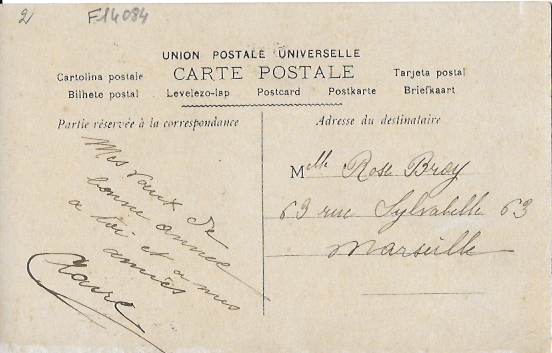 2
F14084
UNION POSTALE UNIVERSELLE
Cartolina postale CARTE POSTALE Tarjeta postal
Bilhete postal Levelezo-lap Postcard Postkarte Briefkaart
Partie réservée à la correspondance
Mes vœux de
bonne année
a toi et a mes
amies
Claire
Adresse du destinataire
Melle Rose Broy
63 rue Sylvabelle 63
Marseille